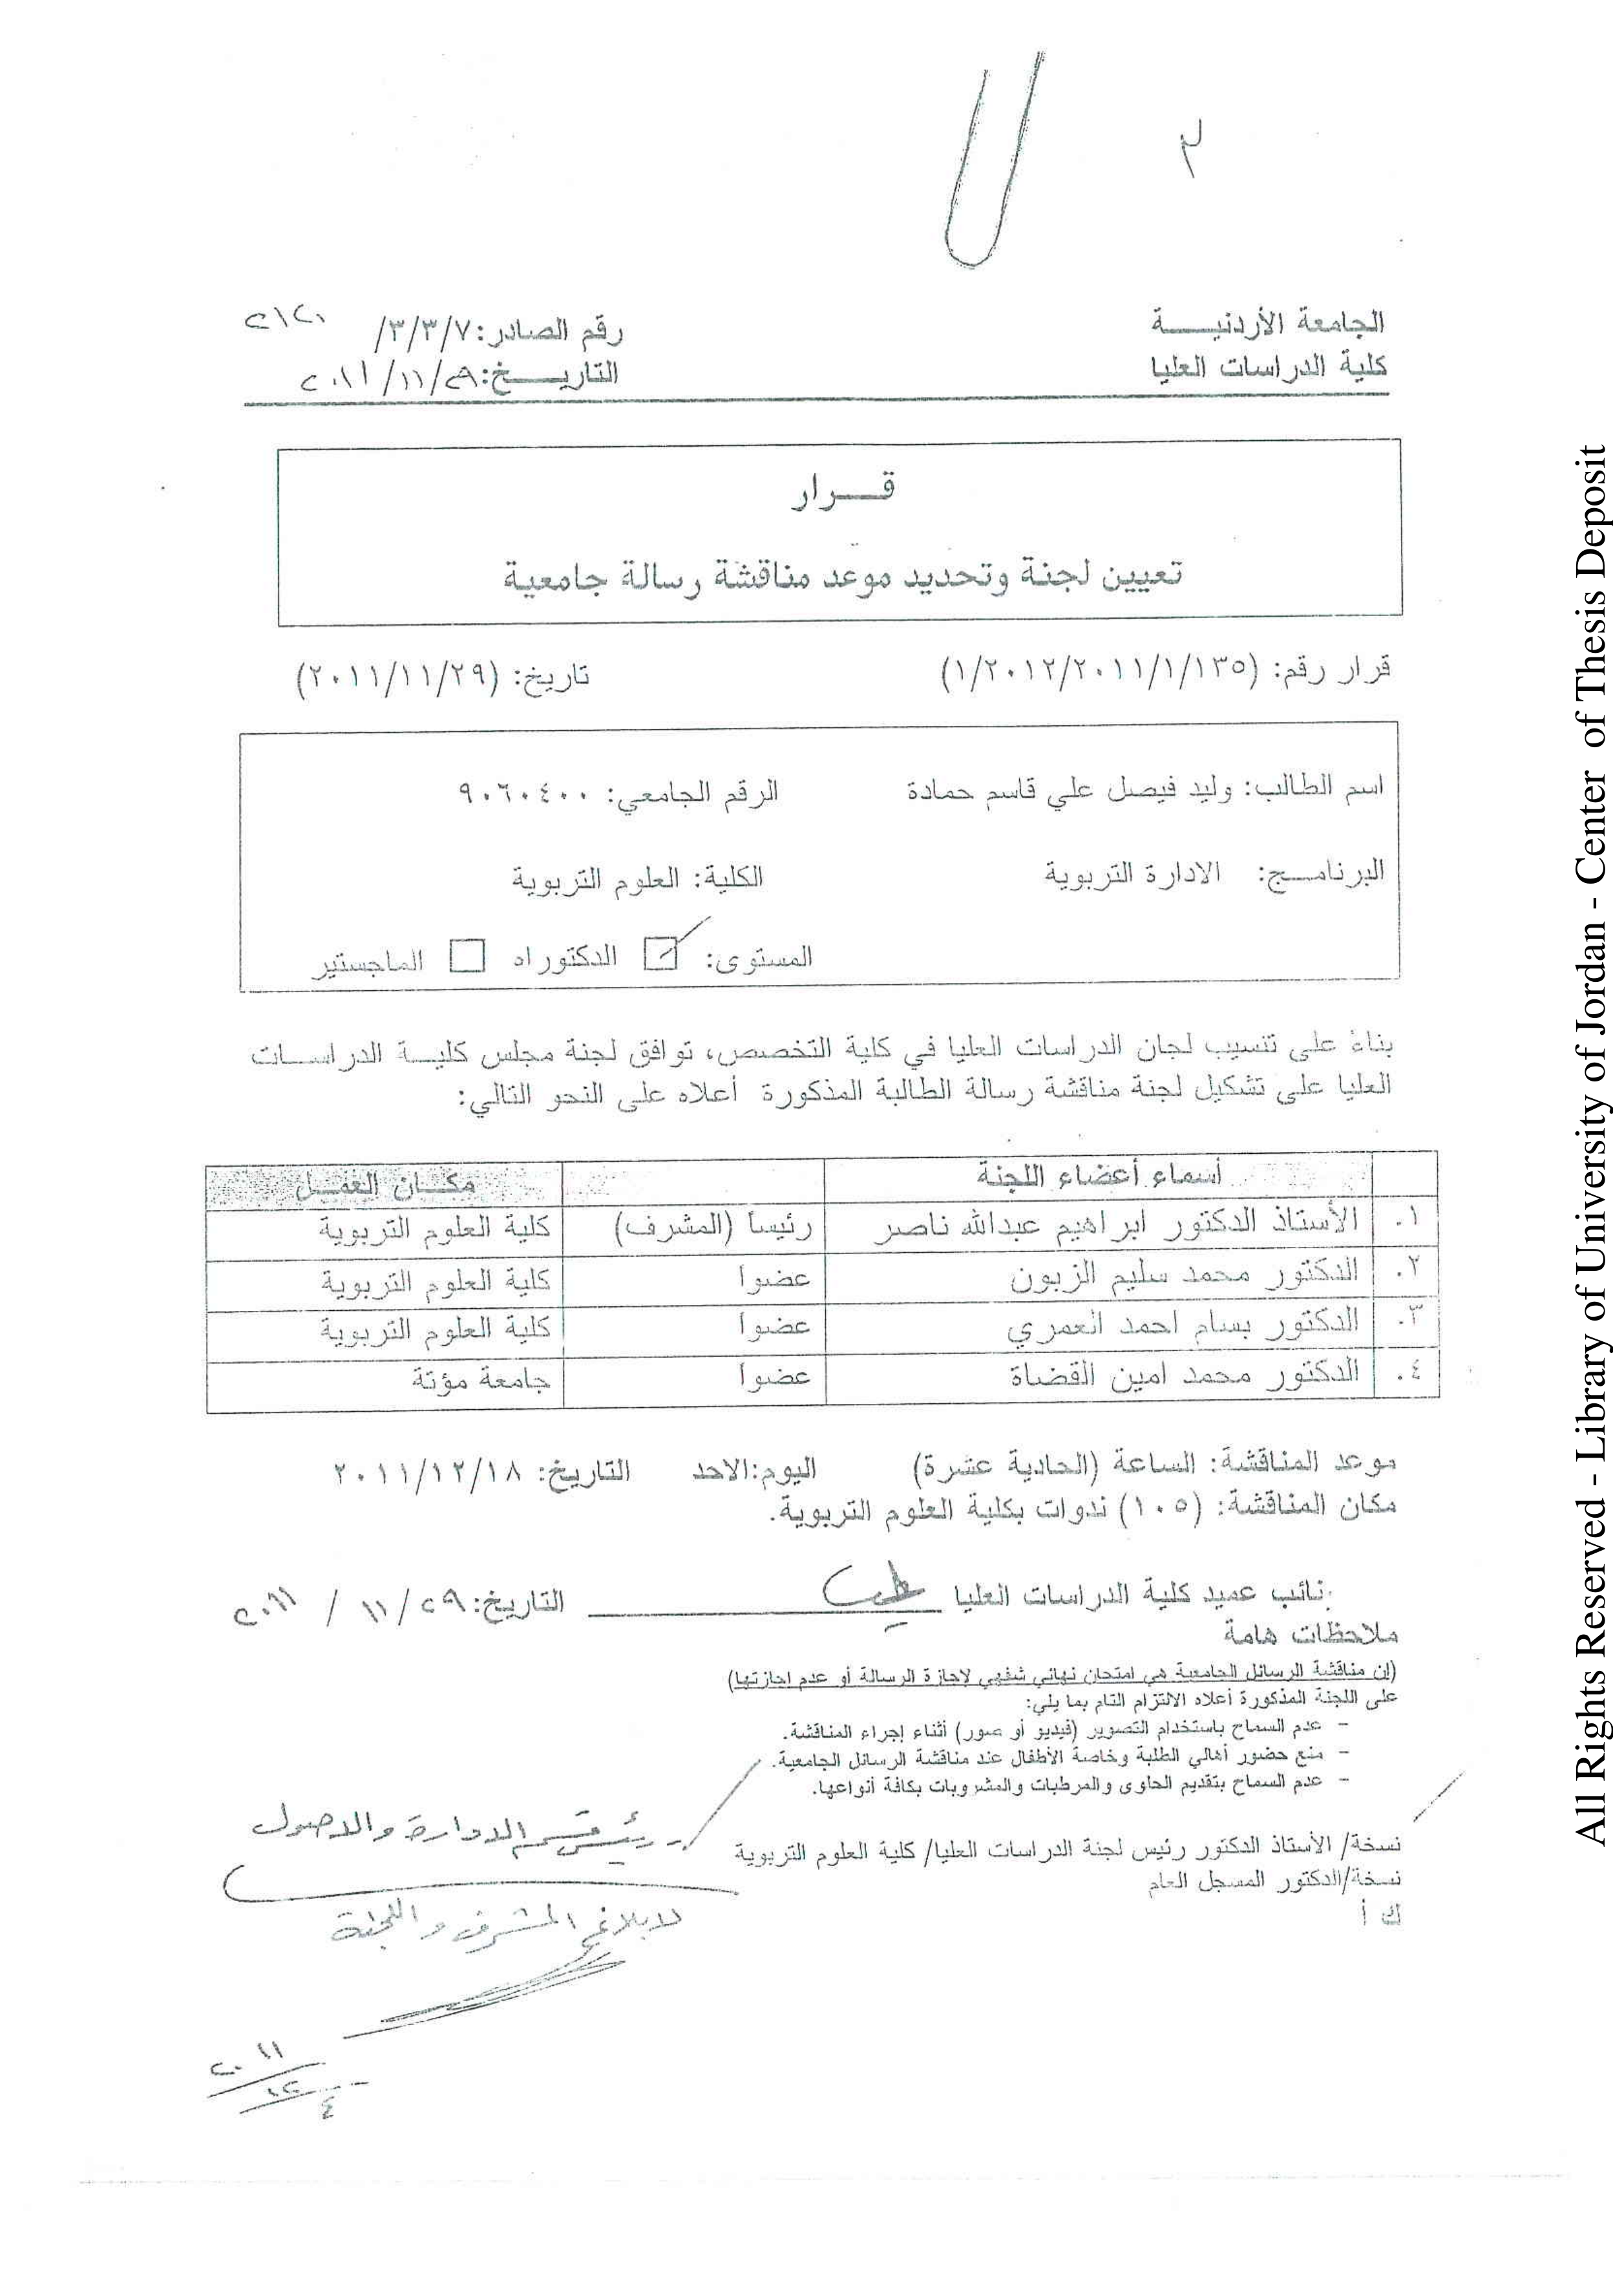 ٢
الجامعة الأردنيــــــة
كلية الدراسات العليا
رقم الصادر: ٣/٣/٧/ ٢١٢٠
التاريـــــخ: ٢٠١١/١١/٢٩
قــــرار
تعيين لجنة وتحديد موعد مناقشة رسالة جامعية
قرار رقم: (١/٢٠١٢/٢٠١١/١/١٣٥) تاريخ: (٢٠١١/١١/٢٩)
اسم الطالب: وليد فيصل علي قاسم حمادة الرقم الجامعي: ٩٠٦٠٤٠٠
البرنامــج: الادارة التربوية الكلية: العلوم التربوية
المستوى: ☑ الدكتوراه ☐ الماجستير
بناءً على تنسيب لجان الدراسات العليا في كلية التخصص، توافق لجنة مجلس كليــة الدراســات
العليا على تشكيل لجنة مناقشة رسالة الطالبة المذكورة أعلاه على النحو التالي:
أسماء أعضاء اللجنة مكــان العمــل
١. الأستاذ الدكتور ابراهيم عبدالله ناصر رئيساً (المشرف) كلية العلوم التربوية
٢. الدكتور محمد سليم الزبون عضوا كلية العلوم التربوية
٣. الدكتور بسام احمد العمري عضوا كلية العلوم التربوية
٤. الدكتور محمد امين القضاة عضوا جامعة مؤتة
موعد المناقشة: الساعة (الحادية عشرة) اليوم:الاحد التاريخ: ٢٠١١/١٢/١٨
مكان المناقشة: (١٠٥) ندوات بكلية العلوم التربوية.
نائب عميد كلية الدراسات العليا التاريخ: ٢٠١١ / ١١ / ٢٩
ملاحظات هامة
(إن مناقشة الرسائل الجامعية هي امتحان نهائي شفهي لإجازة الرسالة أو عدم اجازتها)
على اللجنة المذكورة أعلاه الالتزام التام بما يلي:
- عدم السماح باستخدام التصوير (فيديو أو صور) أثناء إجراء المناقشة.
- منع حضور أهالي الطلبة وخاصة الأطفال عند مناقشة الرسائل الجامعية.
- عدم السماح بتقديم الحلوى والمرطبات والمشروبات بكافة أنواعها.
نسخة/ الأستاذ الدكتور رئيس لجنة الدراسات العليا/ كلية العلوم التربوية
نسخة/الدكتور المسجل العام
ك أ
رئيس قسم الادارة والاصول
لابلاغ المشرف واللجنة
٢٠١١
١٢
٤
All Rights Reserved - Library of University of Jordan - Center of Thesis Deposit